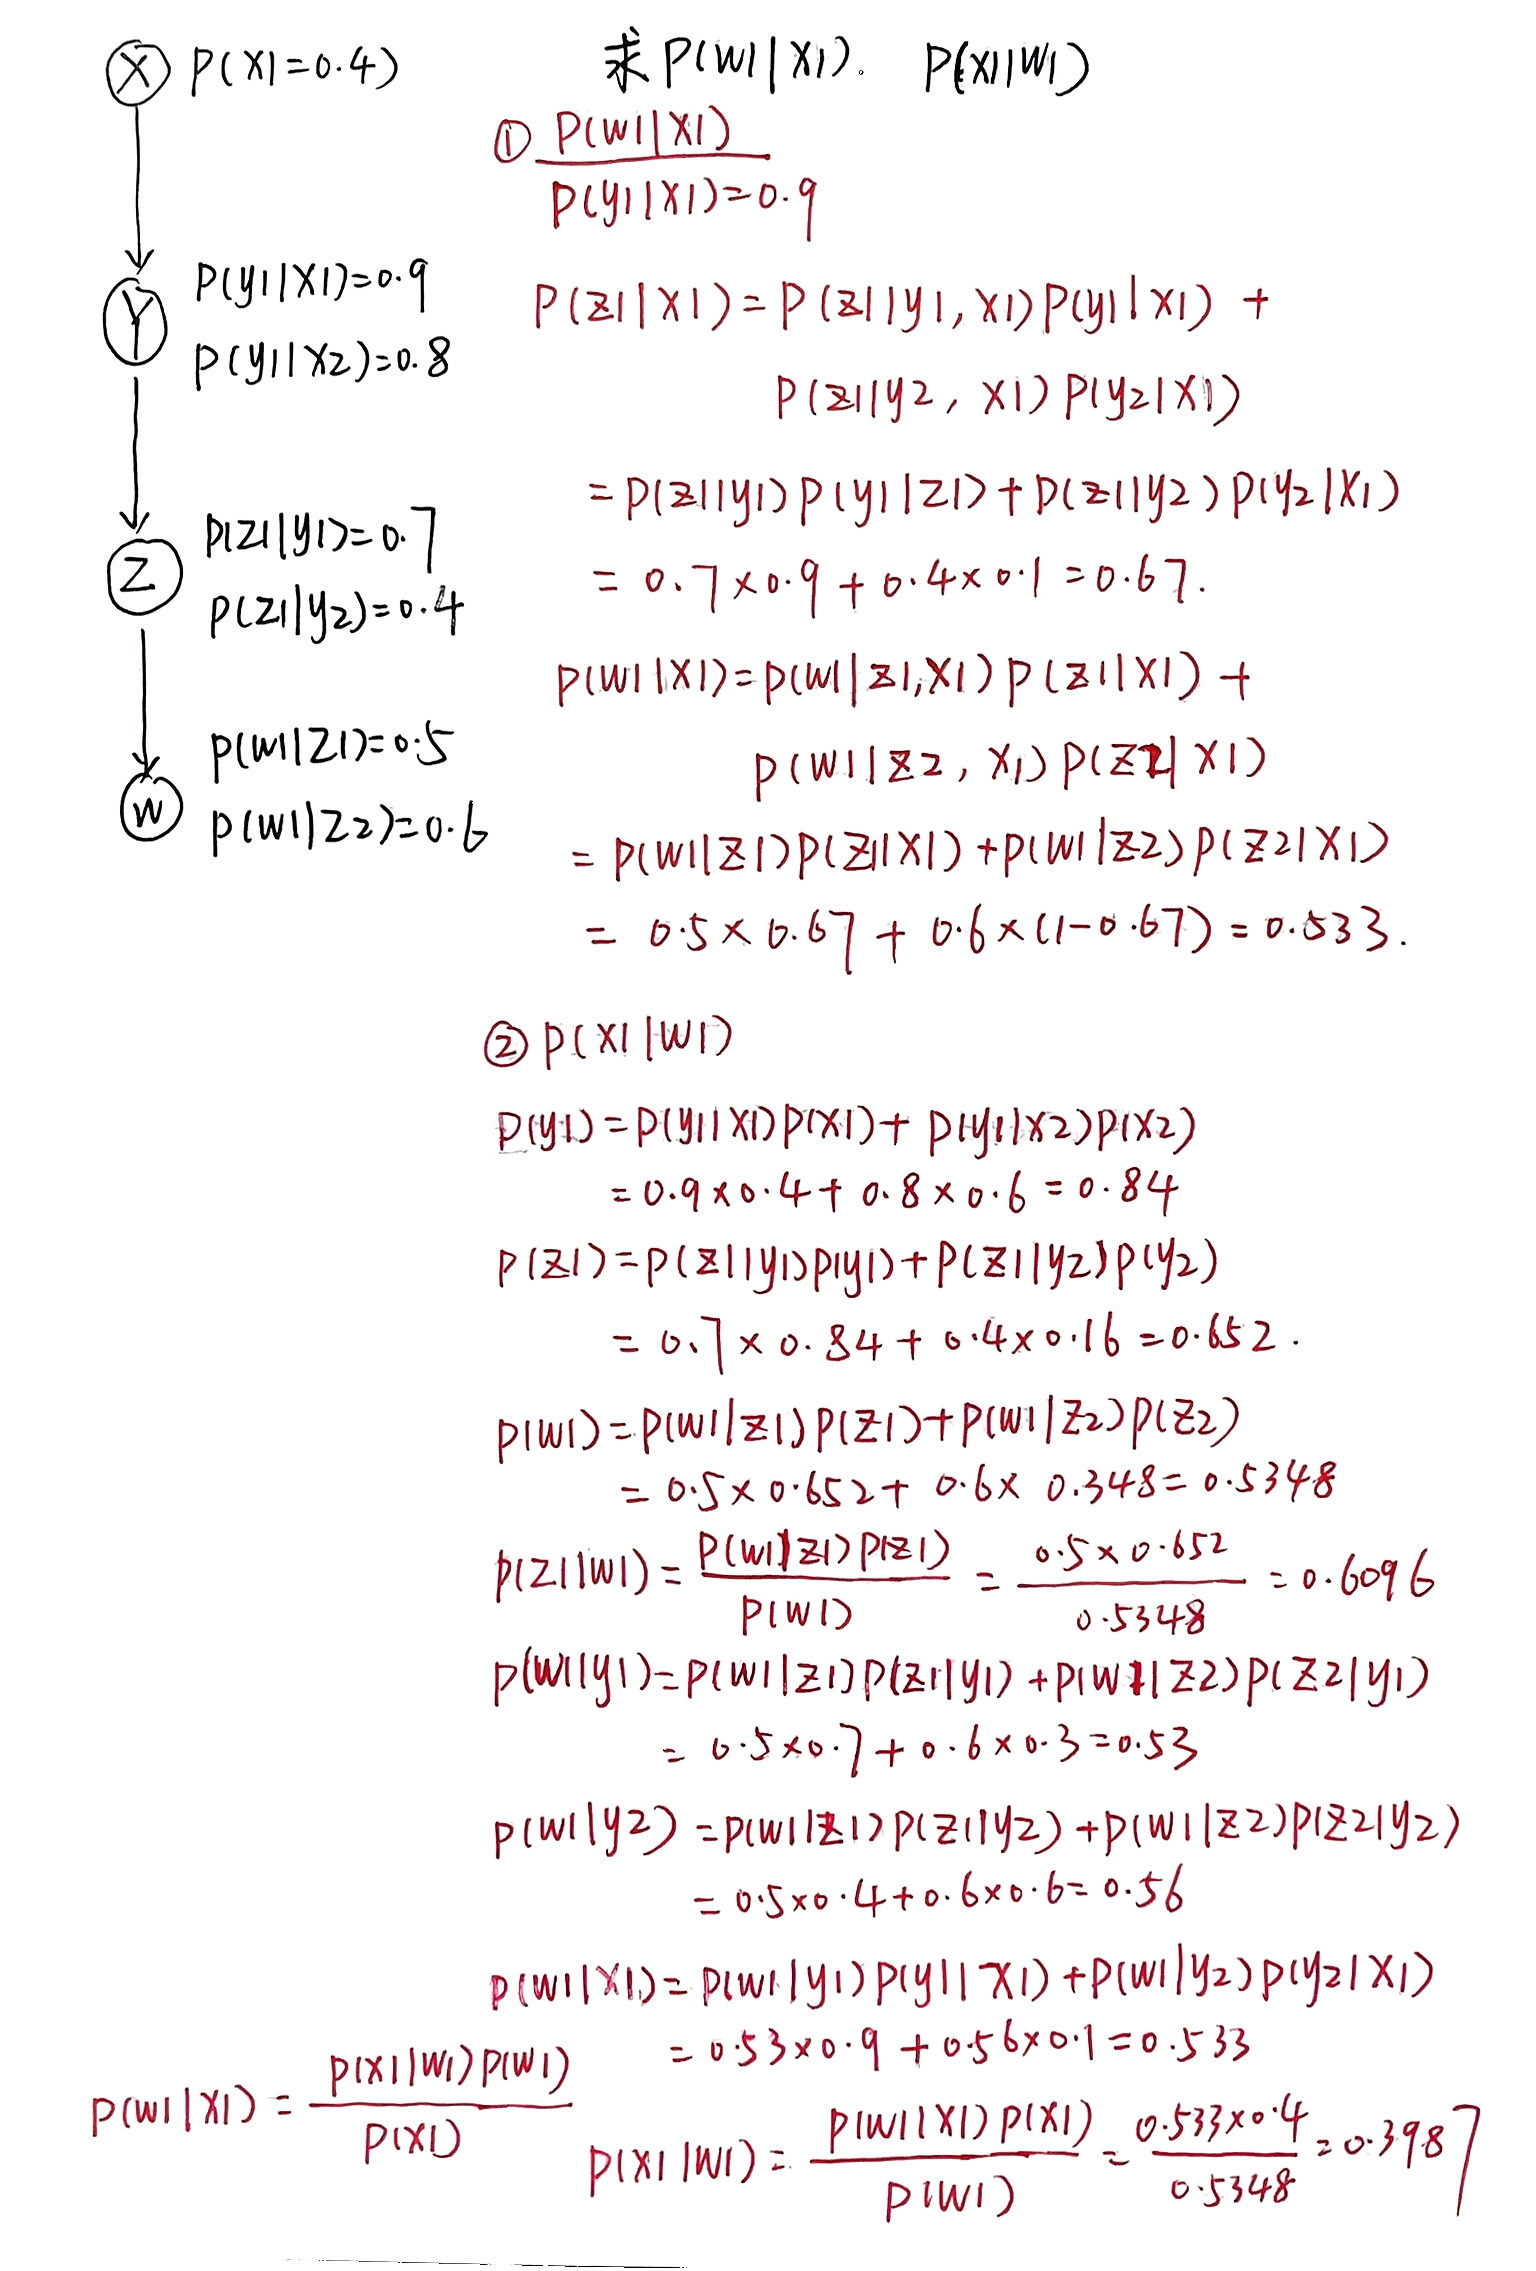 X P(X1=0.4)
求 P(W1|X1). P(X1|W1)
① P(W1|X1)
P(y1|X1)=0.9
Y P(y1|X1)=0.9
P(y1|X2)=0.8
P(z1|X1)=P(z1|y1,X1)P(y1|X1)+
P(z1|y2,X1)P(y2|X1)
=P(z1|y1)P(y1|Z1)+P(z1|y2)P(y2|X1)
=0.7×0.9+0.4×0.1=0.67.
Z P(Z1|y1)=0.7
P(Z1|y2)=0.4
P(W1|X1)=P(W1|z1,X1)P(z1|X1)+
P(W1|z2,X1)P(Z2|X1)
W P(W1|Z1)=0.5
P(W1|Z2)=0.6
=P(W1|Z1)P(Z1|X1)+P(W1|Z2)P(Z2|X1)
=0.5×0.67+0.6×(1-0.67)=0.533.
② P(X1|W1)
P(y1)=P(y1|X1)P(X1)+P(y1|X2)P(X2)
=0.9×0.4+0.8×0.6=0.84
P(Z1)=P(Z1|y1)P(y1)+P(Z1|y2)P(y2)
=0.7×0.84+0.4×0.16=0.652.
P(W1)=P(W1|Z1)P(Z1)+P(W1|Z2)P(Z2)
=0.5×0.652+0.6×0.348=0.5348
P(Z1|W1)=P(W1|Z1)P(Z1)/P(W1)=0.5×0.652/0.5348=0.6096
P(W1|y1)=P(W1|Z1)P(Z1|y1)+P(W1|Z2)P(Z2|y1)
=0.5×0.7+0.6×0.3=0.53
P(W1|y2)=P(W1|Z1)P(Z1|y2)+P(W1|Z2)P(Z2|y2)
=0.5×0.4+0.6×0.6=0.56
P(W1|X1)=P(W1|y1)P(y1|X1)+P(W1|y2)P(y2|X1)
=0.53×0.9+0.56×0.1=0.533
P(W1|X1)=P(X1|W1)P(W1)/P(X1)
P(X1|W1)=P(W1|X1)P(X1)/P(W1)=0.533×0.4/0.5348=0.3987